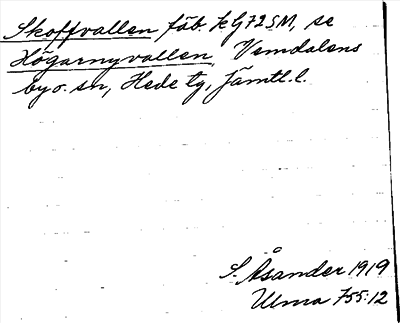 Skoffvallen fäb. kG72SM, se
Högarnyvallen, Vemdalens
by o. sn, Hede tg, Jämtl. l.
S. Åsander 1919
Ulma 755:12